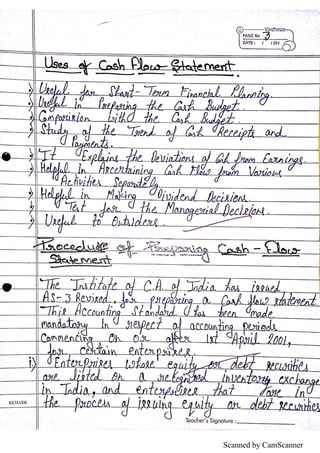 Vardhman
PAGE No. 3
DATE : / /201
Uses of Cash Flow Statement.
Useful for Short-Term Financial Planning.
Useful in Preparing the Cash Budget.
Comparision with the Cash Budget.
Study of the Trend of Cash Receipts and
Payments.
It Explains the Deviations of Cash from Earnings.
Helpful in Ascertaining Cash Flow from Various
Activities Separately.
Helpful in Making Dividend Decisions.
Test for the Managerial Decisions.
Useful to Outsiders.
Procedure of Preparing Cash-Flow
Statement
The Institute of C.A. of India has issued
AS-3 Revised, for preparing a Cash flow statement
This Accounting Standard has been made
mandatory in respect of accounting periods
Commencing on or after 1st April 2001,
for certain enterprises.
i) Enterprises whose equity or debt securities
are listed on a recognised inventory exchange
in India, and enterprises that are in
the process of issuing equity or debt securities
REMARK
Teacher's Signature :
Scanned by CamScanner